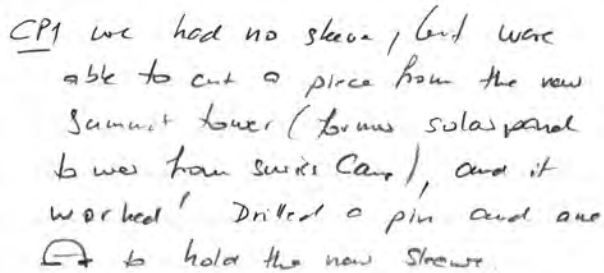 CP1 we had no sleeve, but were
able to cut a piece from the new
Summit tower (former solar panel
tower from Swiss Camp), and it
worked! Drilled a pin and one
to hold the new sleeve.